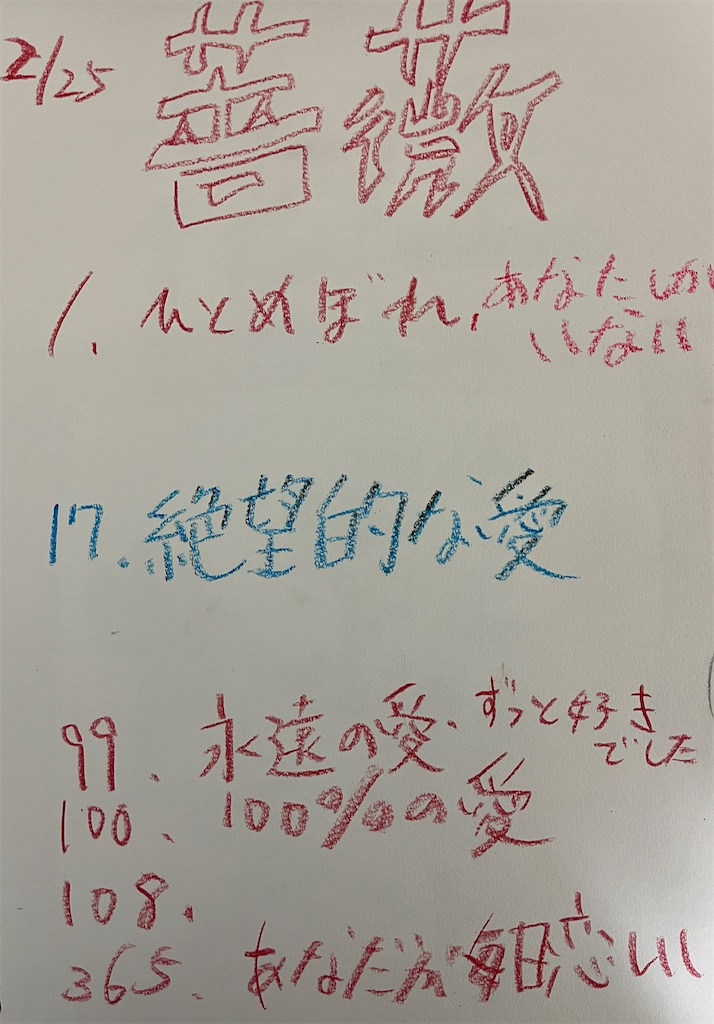 2/25
薔薇
1. ひとめぼれ, あなたしか
いない
17. 絶望的な愛
99、永遠の愛、ずっと好き
でした
100、100%の愛
108.
365、あなたが毎日恋しい